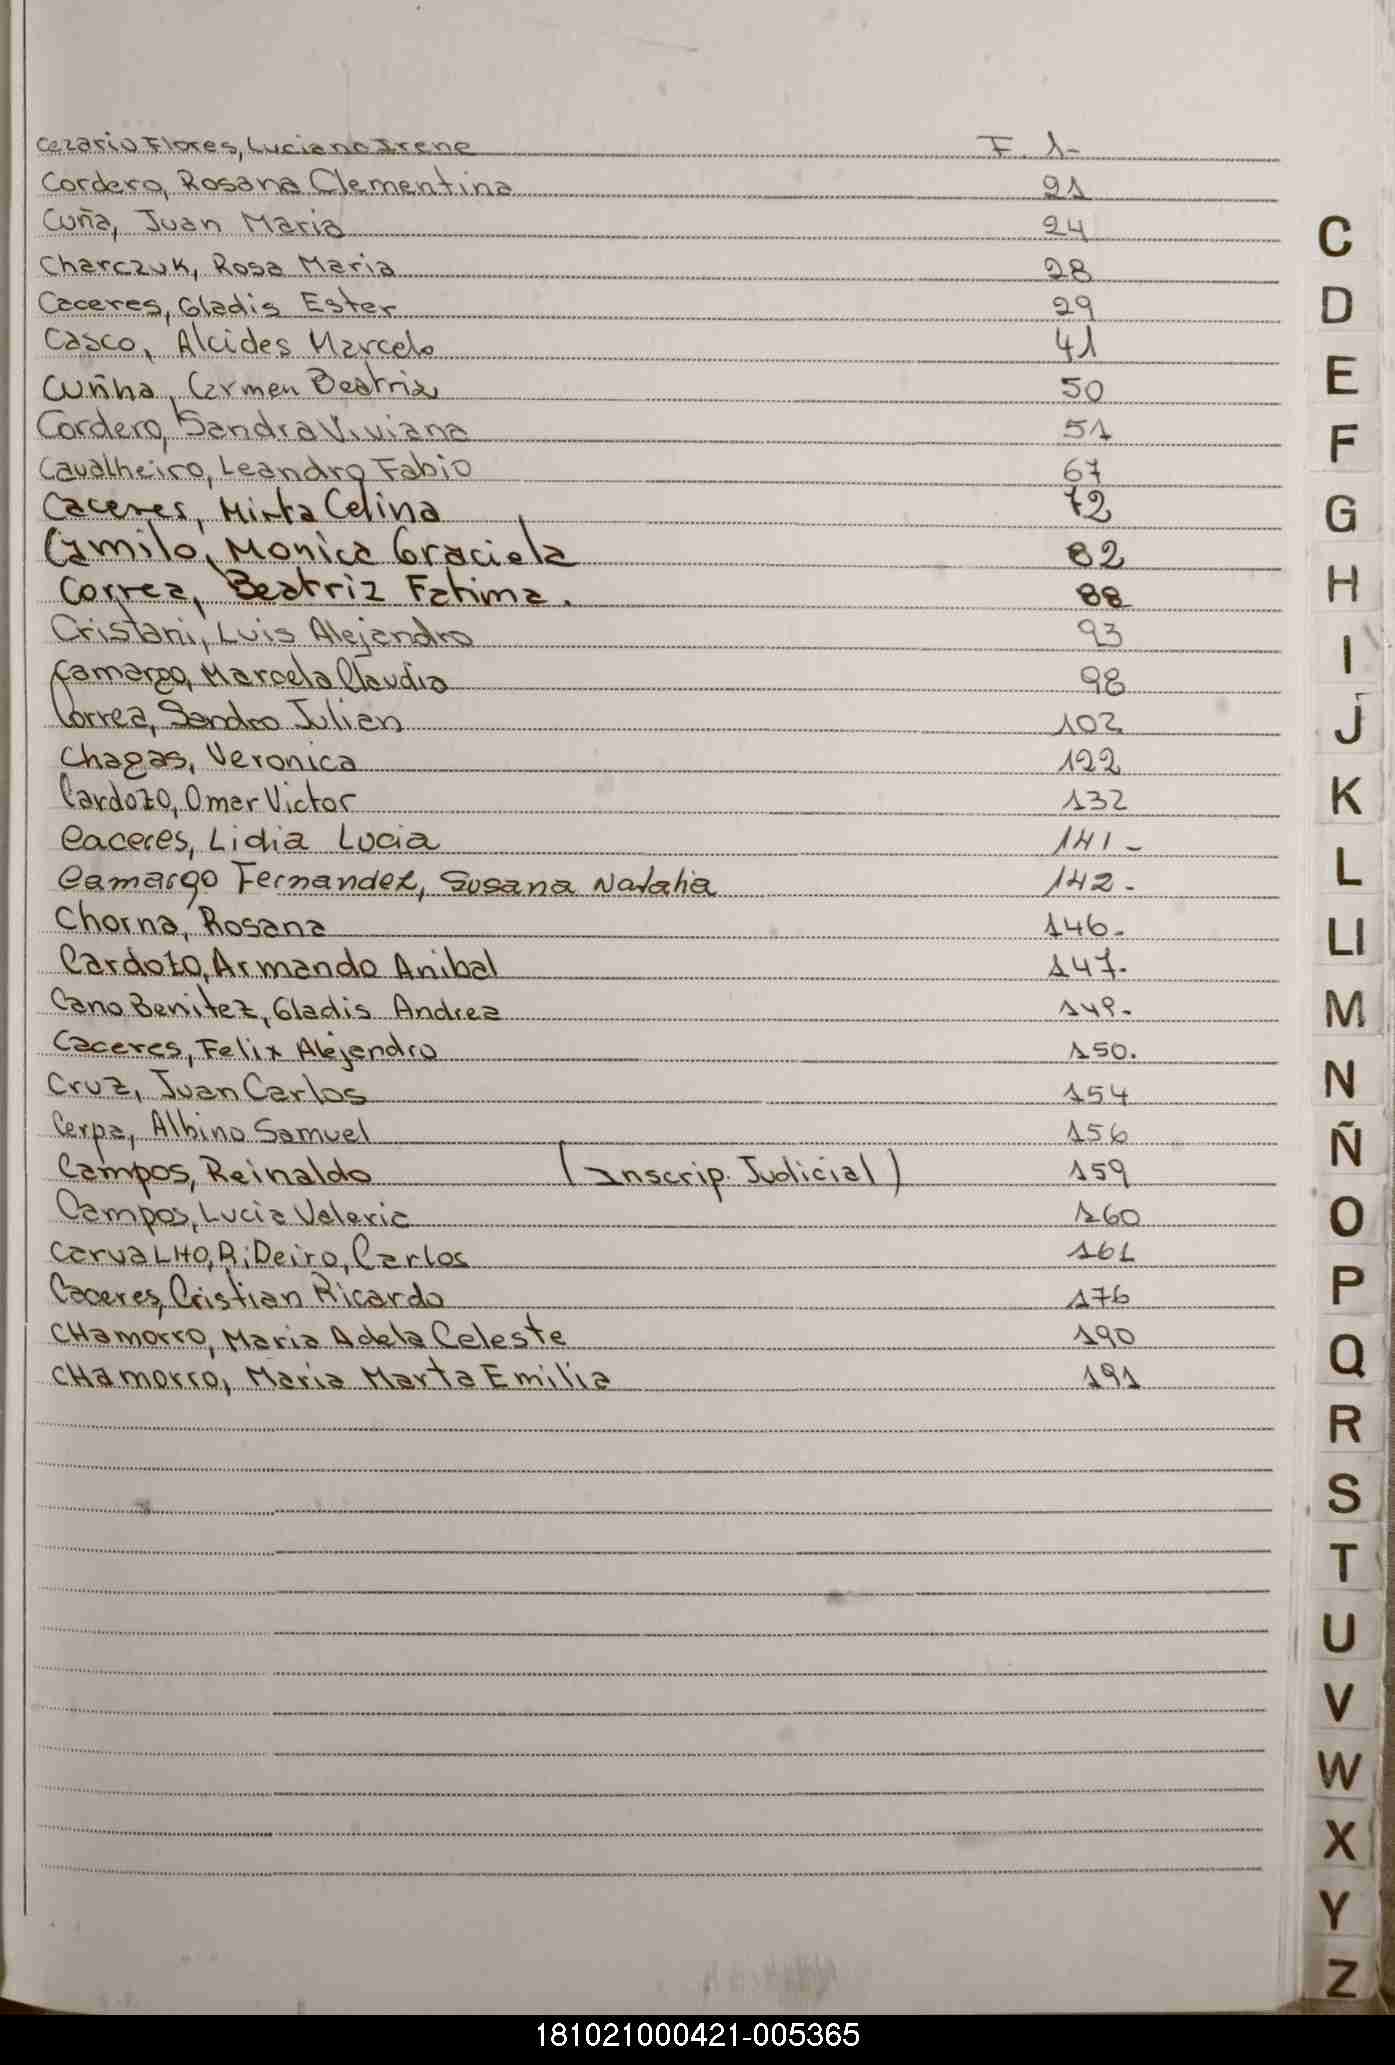 Cezario Flores, Luciano Irene F. 1-
Cordero, Rosana Clementina 21
Cuña, Juan Maria 24
Charczuk, Rosa Maria 28
Caceres, Gladis Ester 29
Casco, Alcides Marcelo 41
Cuñha, Carmen Beatriz 50
Cordero, Sandra Viviana 51
Cavalheiro, Leandro Fabio 67
Caceres, Mirta Celina 72
Camilo, Monica Graciela 82
Correa, Beatriz Fatima. 88
Cristani, Luis Alejandro 93
Camargo, Marcela Claudia 98
Correa, Sandro Julian 102
Chagas, Veronica 122
Cardozo, Omar Victor 132
Caceres, Lidia Lucia 141-
Camargo Fernandez, Susana Natalia 142-
Chorna, Rosana 146-
Cardozo, Armando Anibal 147-
Cano Benitez, Gladis Andrea 149-
Caceres, Felix Alejandro 150.
Cruz, Juan Carlos 154
Cerpa, Albino Samuel 156
Campos, Reinaldo (Inscrip. Judicial) 159
Campos, Lucia Valeria 160
Carvalho, Ribeiro, Carlos 161
Caceres, Cristian Ricardo 176
CHamorro, Maria Adela Celeste 190
CHamorro, Maria Marta Emilia 191
C
D
E
F
G
H
I
J
K
L
Ll
M
N
Ñ
O
P
Q
R
S
T
U
V
W
X
Y
Z
181021000421-005365